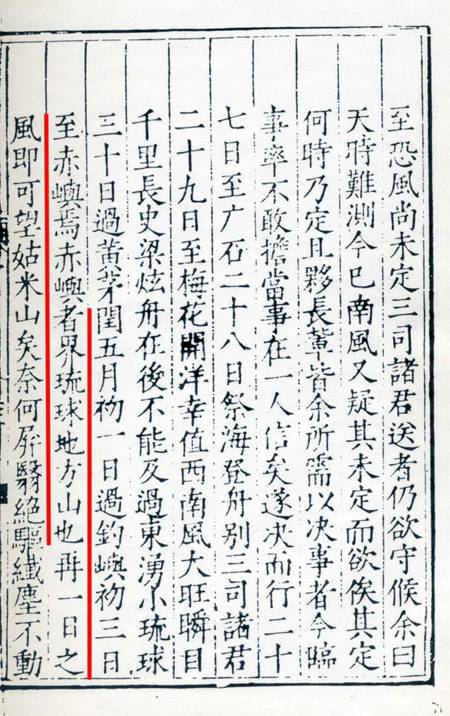 至恐風尚未定三司諸君送者仍欲守候余曰
天時難測今已南風又疑其未定而欲俟其定
何時乃定且夥長輩皆余所需以决事者今臨
事率不敢擔當事在一人信矣遂决而行二十
七日至广石二十八日祭海登舟别三司諸君
二十九日至梅花開洋幸值西南風大旺瞬目
千里長史梁炫舟在後不能及過東湧小琉球
三十日過黄茅閏五月初一日過釣嶼初三日
至赤嶼焉赤嶼者界琉球地方山也再一日之
風即可望姑米山矣奈何屏翳絕驅纖塵不動